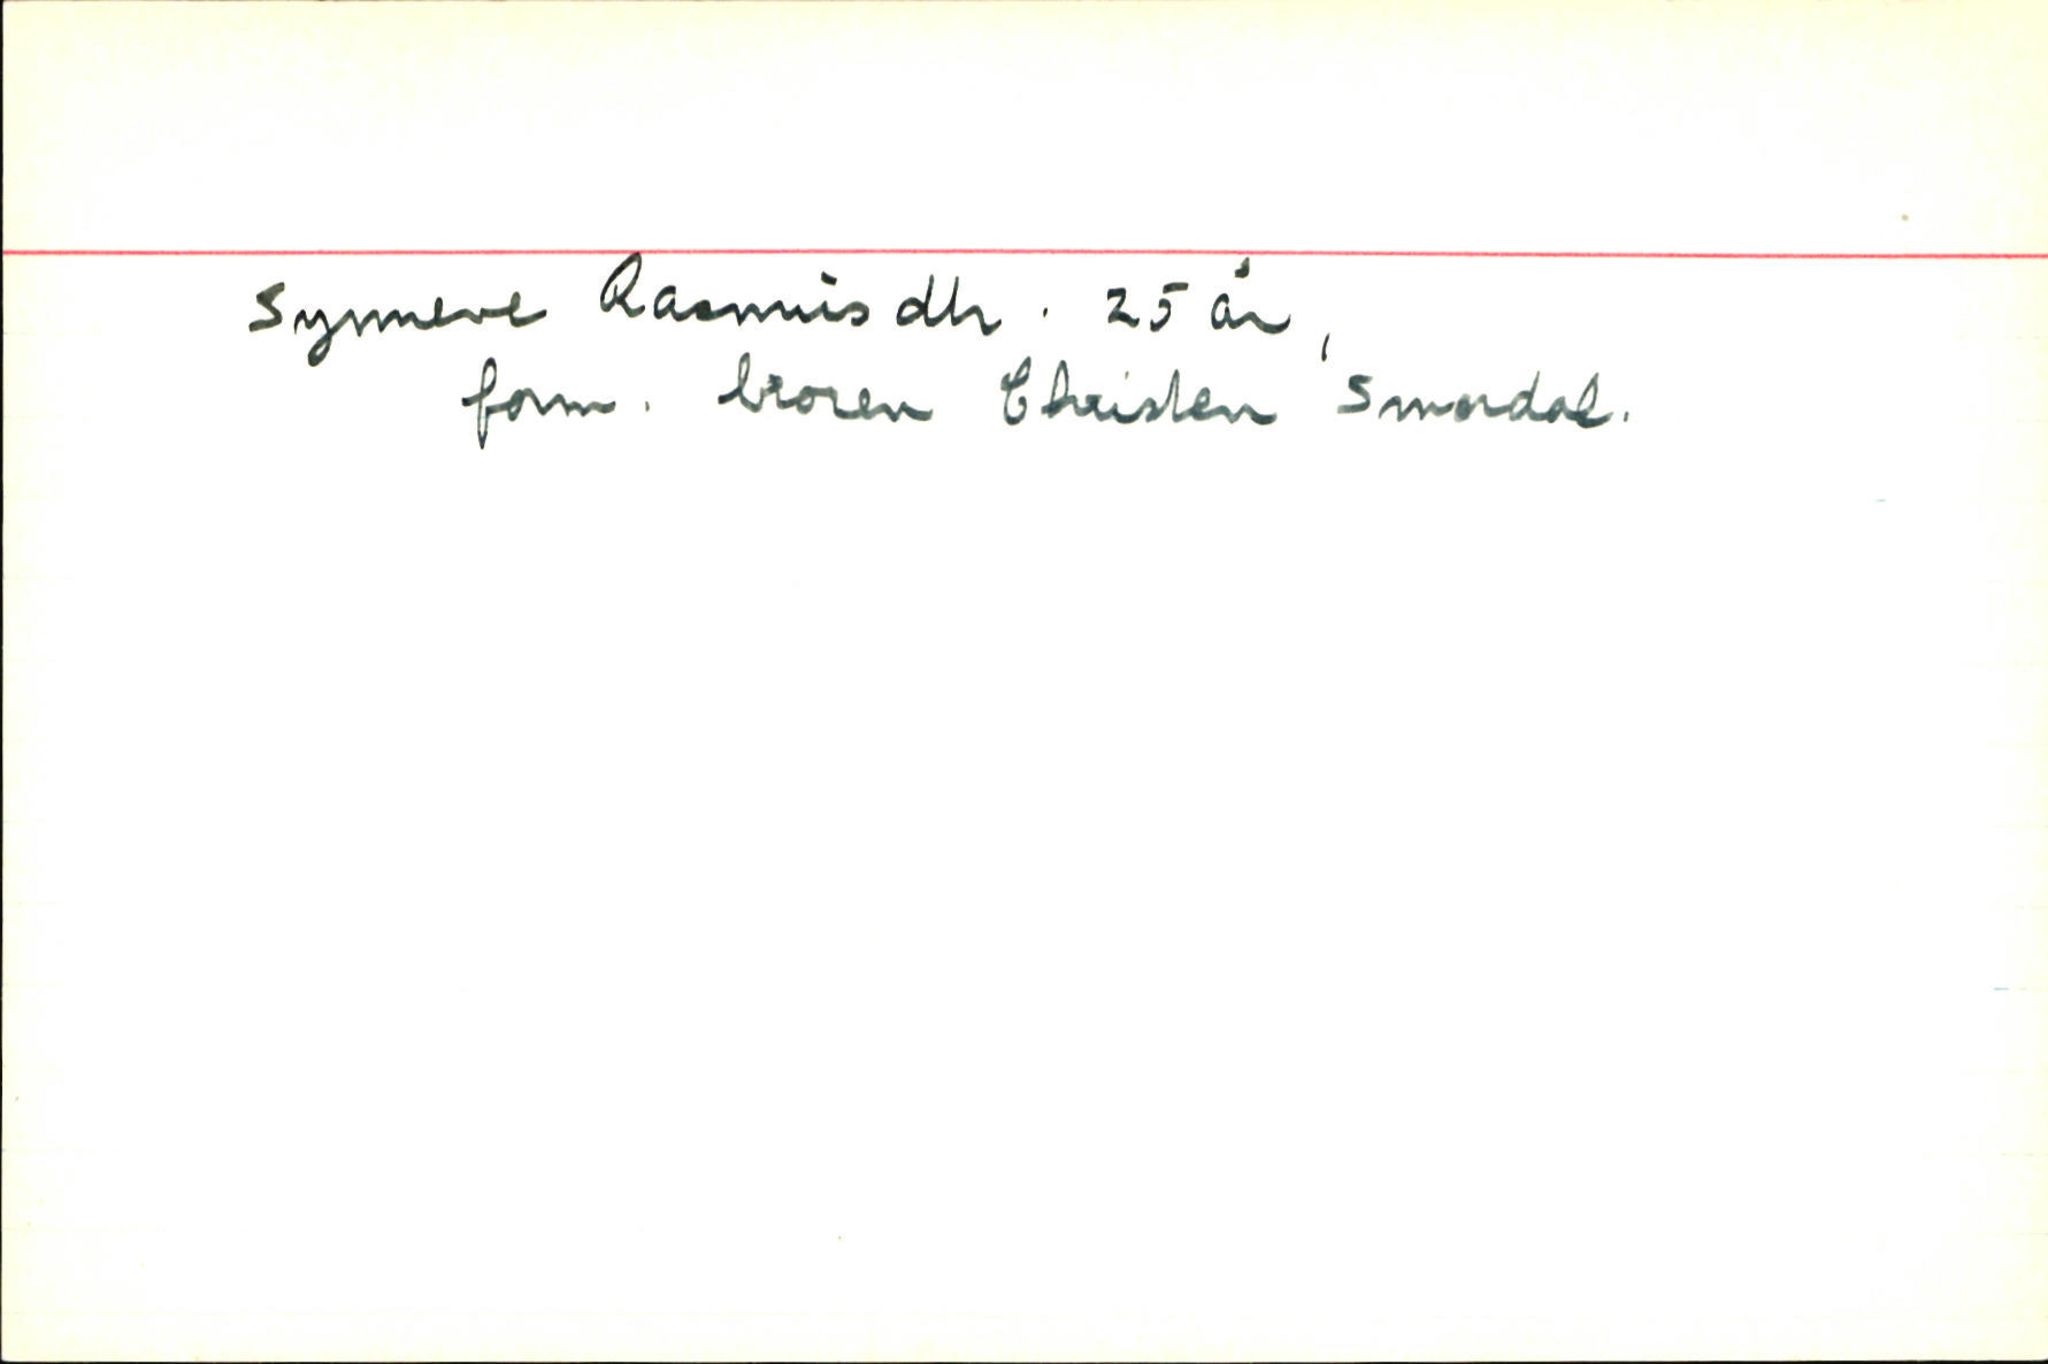 Synneve Rasmusdtr. 25 år,
form. broren Christen Smørdal.